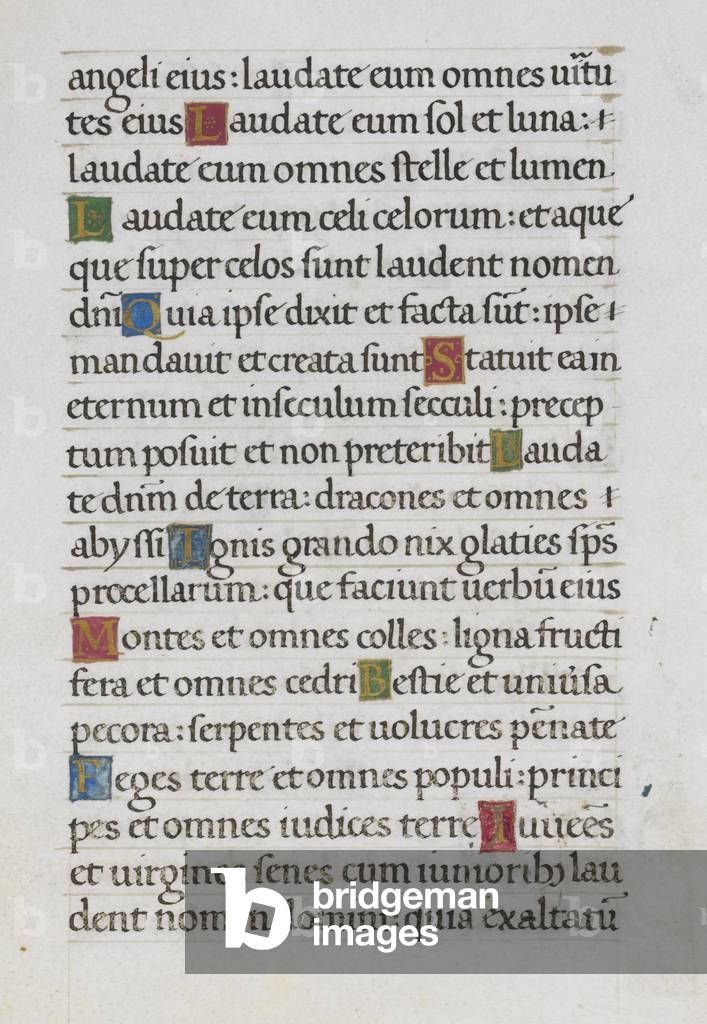 angeli eius: laudate eum omnes uir̃tu
tes eius Laudate eum sol et luna:
laudate eum omnes stelle et lumen
Laudate eum celi celorum: et aque
que super celos sunt laudent nomen
dn̄i Quia ipse dixit et facta sūt: ipse
mandauit et creata sunt Statuit ea in
eternum et in seculum seculi: precep
tum posuit et non preteribit Lauda
te dn̄m de terra: dracones et omnes
abyssi Ignis grando nix glaties sp̄s
procellarum: que faciunt uerbū eius
Montes et omnes colles: ligna fructi
fera et omnes cedri Bestie et uniu̓sa
pecora: serpentes et uolucres pēnate
Feges terre et omnes populi: princi
pes et omnes iudices terre Iuuēes
et uirgines senes cum iuniorib; lau
dent nomen domini: quia exaltatū
bridgeman
images